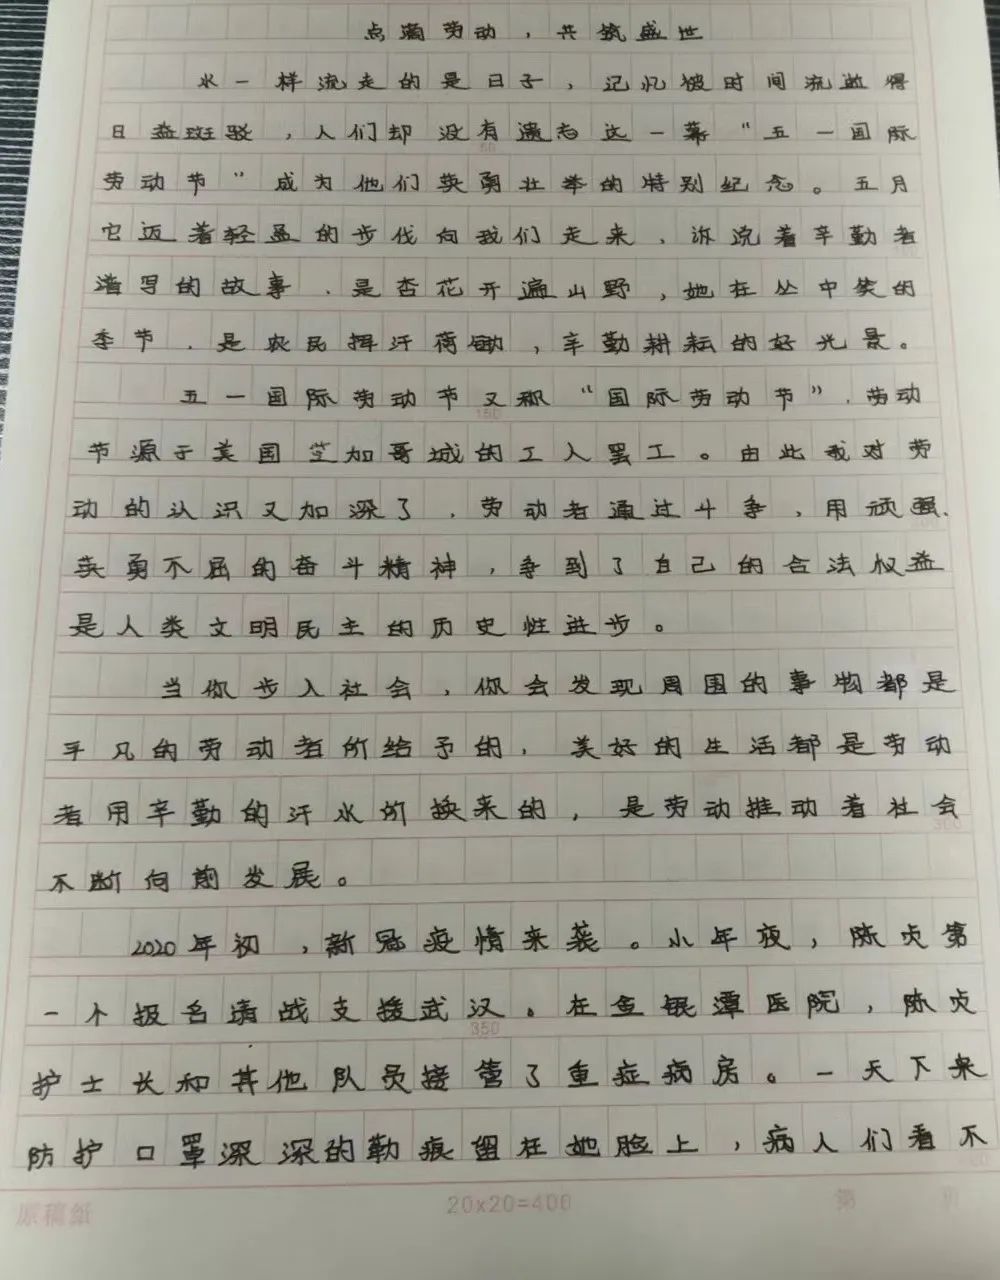 点滴劳动，共筑盛世
水一样流走的是日子，记忆被时间流逝得
日益斑驳，人们却没有遗忘这一幕“五一国际
劳动节”成为他们英勇壮举的特别纪念。五月
它迈着轻盈的步伐向我们走来，诉说着辛勤者
谱写的故事，是杏花开遍山野，她在丛中笑的
季节，是农民挥汗荷锄，辛勤耕耘的好光景。
五一国际劳动节又称“国际劳动节”，劳动
节源于美国芝加哥城的工人罢工。由此我对劳
动的认识又加深了，劳动者通过斗争，用顽强、
英勇不屈的奋斗精神，争到了自己的合法权益
是人类文明民主的历史性进步。
当你步入社会，你会发现周围的事物都是
平凡的劳动者所给予的，美好的生活都是劳动
者用辛勤的汗水所换来的，是劳动推动着社会
不断向前发展。
2020年初，新冠疫情来袭。小年夜，陈贞第
一个报名请战支援武汉。在金银潭医院，陈贞
护士长和其他队员接管了重症病房。一天下来
防护口罩深深的勒痕留在她脸上，病人们看不
原稿紙
20x20=400
第 页